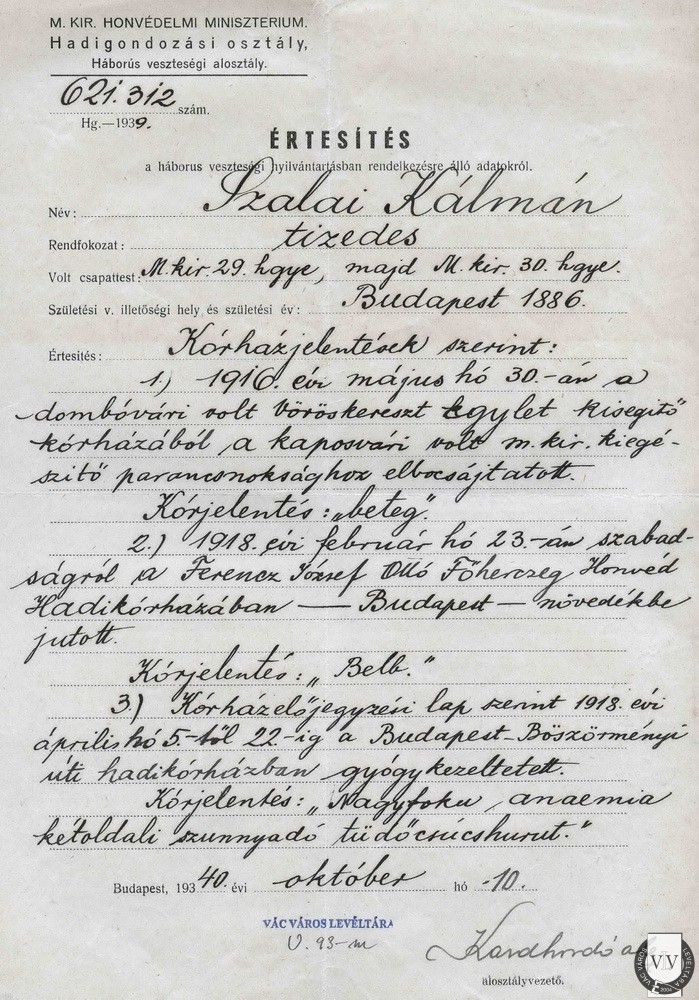 M. KIR. HONVÉDELMI MINISZTERIUM.
Hadigondozási osztály,
Háborús veszteségi alosztály.
621.312 szám.
Hg.—1939.
ÉRTESÍTÉS
a háborus veszteségi nyilvántartásban rendelkezésre álló adatokról.
Név: Szalai Kálmán
Rendfokozat: tizedes
Volt csapattest: M. kir. 29. hgye, majd M. kir. 30. hgye.
Születési v. illetőségi hely és születési év: Budapest 1886.
Értesítés: Kórházjelentések szerint:
1.) 1916. évi május hó 30.-án a
dombóvári volt Vöröskereszt Egylet kisegitő
kórházából a kaposvári volt m. kir. kiegé-
szitő parancsnoksághoz elbocsájtatott.
Kórjelentés: „beteg".
2.) 1918. évi február hó 23.-án szabad-
ságról a Ferencz József Ottó Főherczeg Honvéd
Hadikórházában — Budapest — növedékbe
jutott.
Kórjelentés: „Belb."
3.) Kórházelőjegyzési lap szerint 1918. évi
április hó 5.-től 22.-ig a Budapest-Böszörményi
úti hadikórházban gyógykezeltetett.
Kórjelentés: „Nagyfoku anaemia
kétoldali szunnyadó tüdőcsúcshurut."
Budapest, 1940. évi október hó 10.
VÁC VÁROS LEVÉLTÁRA
V. 93-m
alosztályvezető.
VÁC VÁROS LEVÉLTÁRA
VV
2004